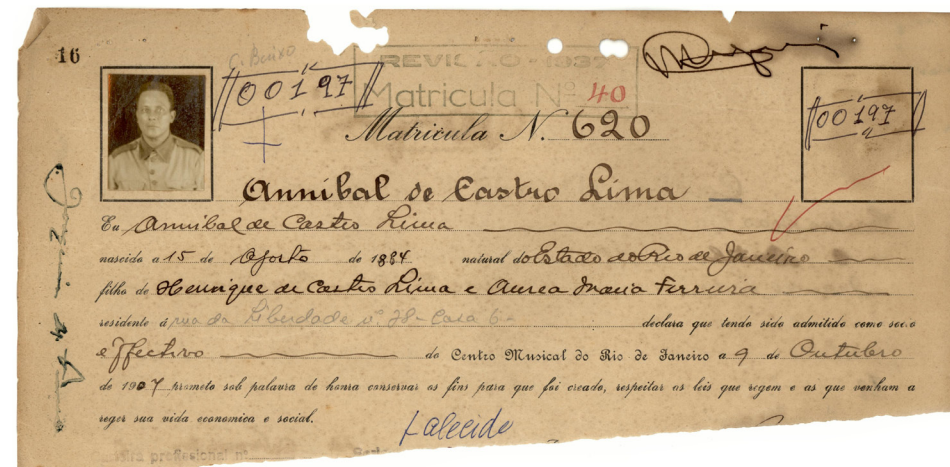 16
00197
REVISÃO - 1932
Matricula Nº 40
Matricula N. 620
00197
Annibal de Castro Lima
Eu Annibal de Castro Lima
nascido a 15 de Agosto de 1884 natural do Estado do Rio de Janeiro
filho de Henrique de Castro Lima e Aurea Maria Ferreira
residente á rua da Liberdade nº 38 - Casa 6 -
declara que tendo sido admitido como socio
effectivo do Centro Musical do Rio de Janeiro a 9 de Outubro
de 1907 prometo sob palavra de honra conservar os fins para que foi creado, respeitar as leis que regem e as que venham a
reger sua vida economica e social.
Falecido
profissional nº